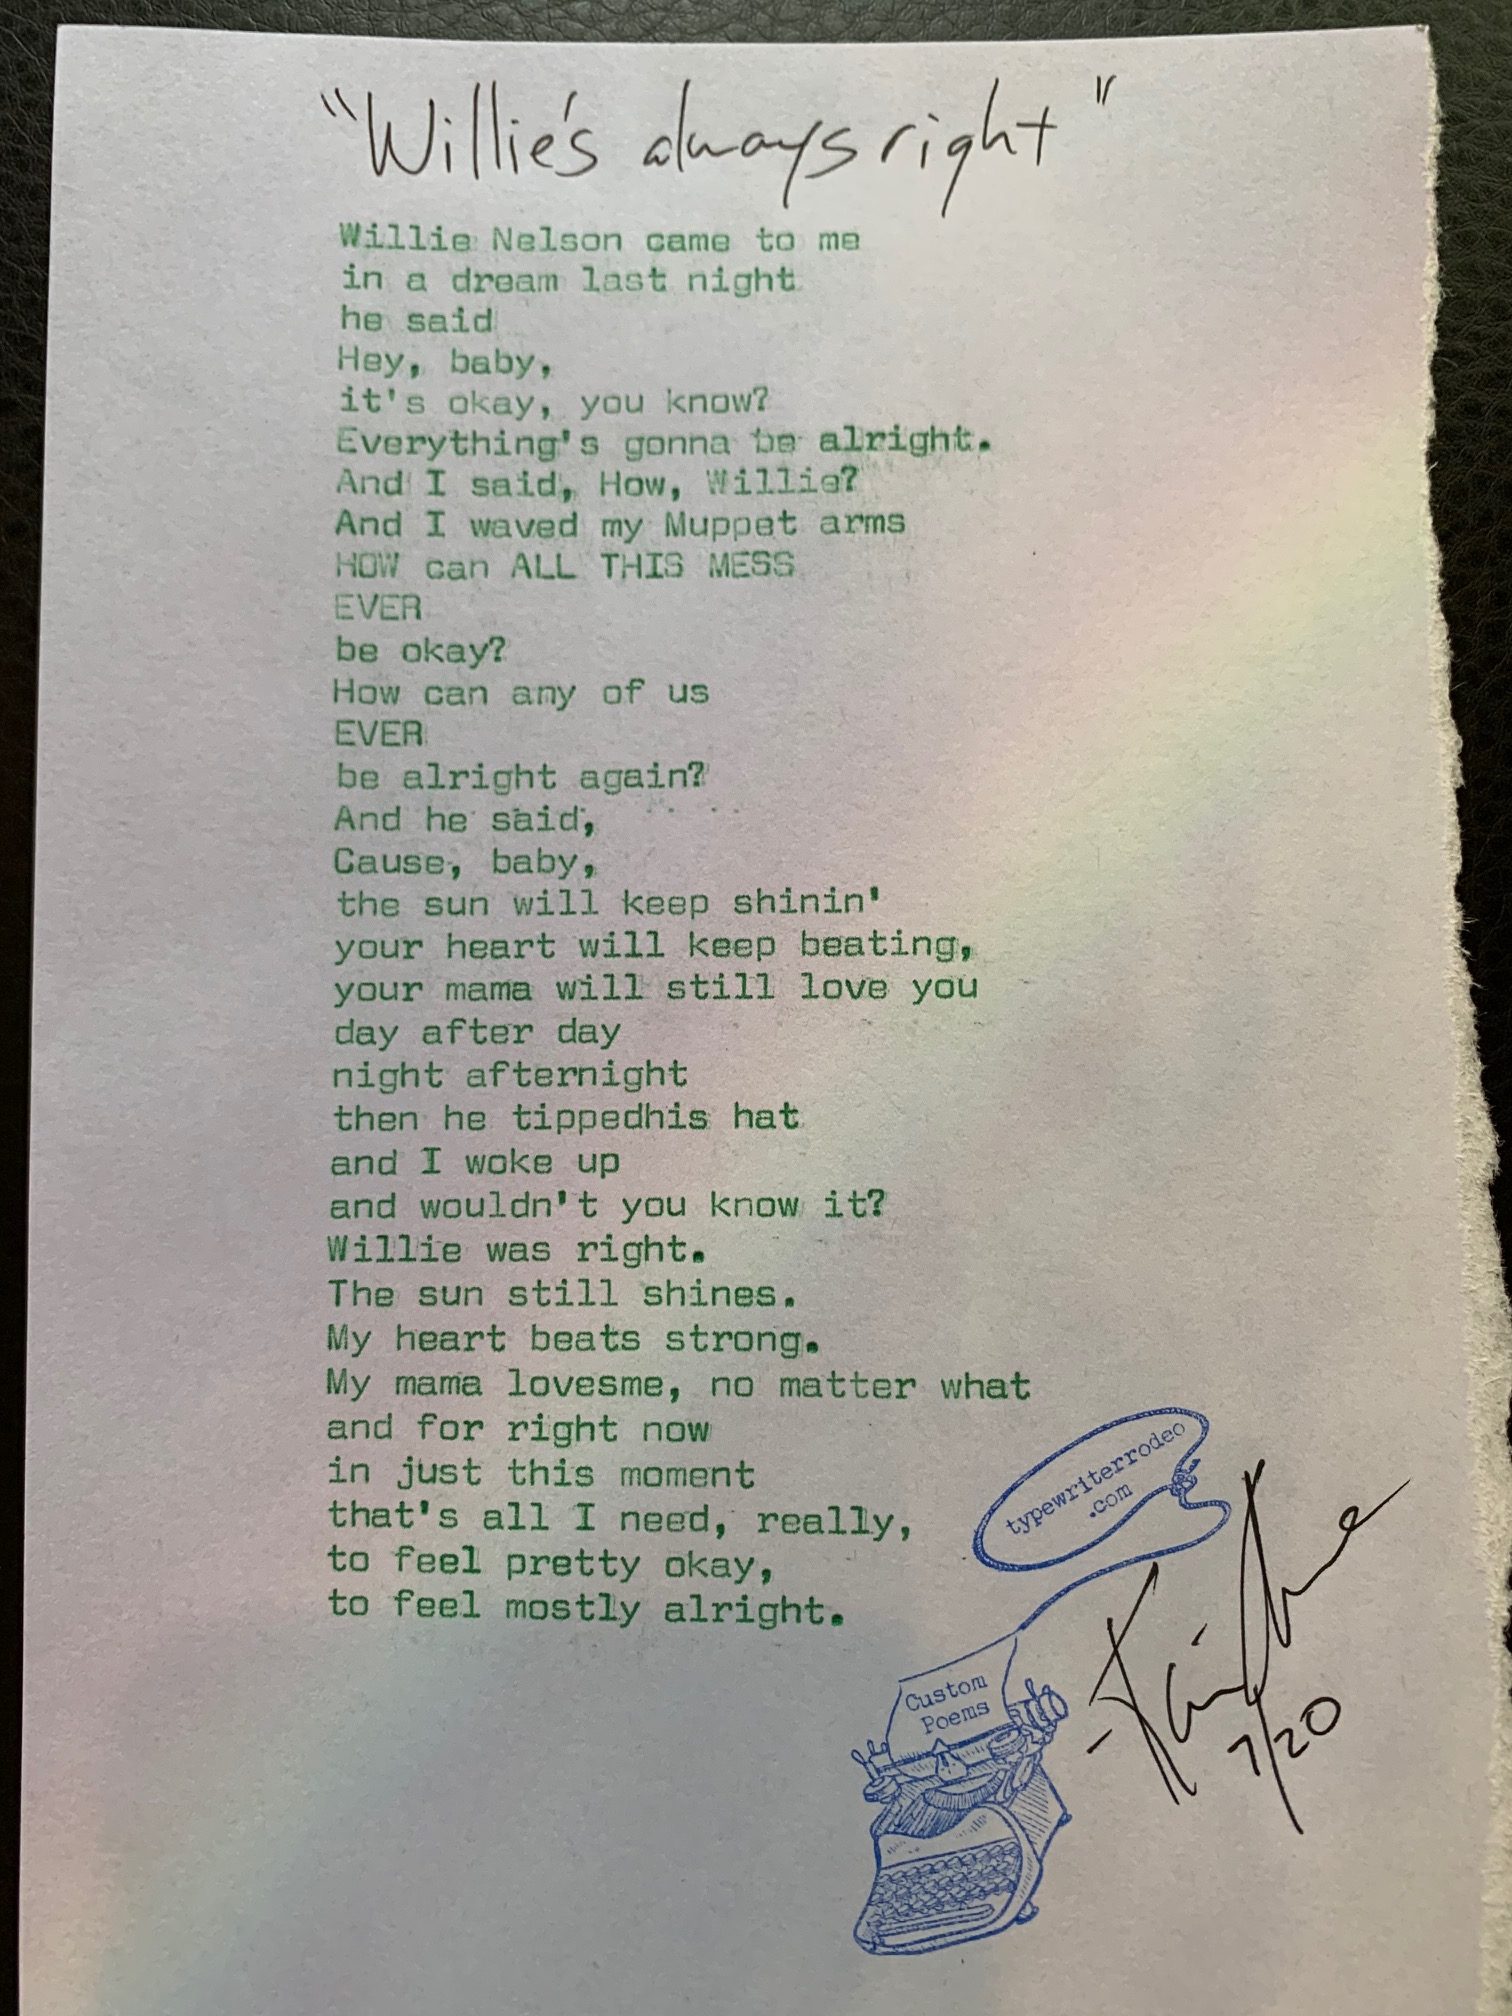 "Willie's always right"
Willie Nelson came to me
in a dream last night
he said
Hey, baby,
it's okay, you know?
Everything's gonna be alright.
And I said, How, Willie?
And I waved my Muppet arms
HOW can ALL THIS MESS
EVER
be okay?
How can any of us
EVER
be alright again?
And he said,
Cause, baby,
the sun will keep shinin'
your heart will keep beating,
your mama will still love you
day after day
night afternight
then he tippedhis hat
and I woke up
and wouldn't you know it?
Willie was right.
The sun still shines.
My heart beats strong.
My mama lovesme, no matter what
and for right now
in just this moment
that's all I need, really,
to feel pretty okay,
to feel mostly alright.
typewriterrodeo
.com
Custom
Poems
7/20